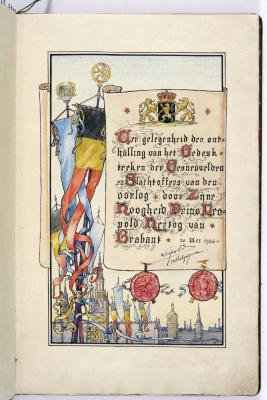 Ter gelegenheid der ont-
hulling van het Gedenk-
teeken der Gesneuvelden
en Slachtoffers van den
oorlog door Zijne
Hoogheid Prins Leo-
pold Hertog van
Brabant 30 Mei 1926